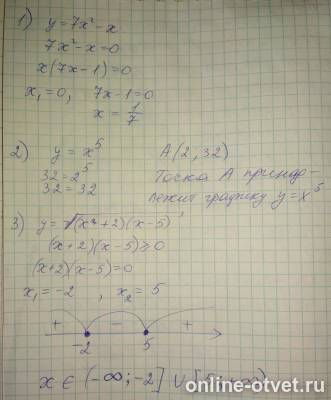 1) y = 7x² - x
7x² - x = 0
x(7x - 1) = 0
x₁ = 0, 7x - 1 = 0
x = 1/7
2) y = x⁵ A(2, 32)
32 = 2⁵ Точка А принад-
32 = 32 лежит графику y = x⁵
3) y = √(x+2)(x-5)
(x+2)(x-5) ≥ 0
(x+2)(x-5) = 0
x₁ = -2, x₂ = 5
+ - +
-2 5
x ∈ (-∞; -2] ∪ [5; +∞)
online-otvet.ru